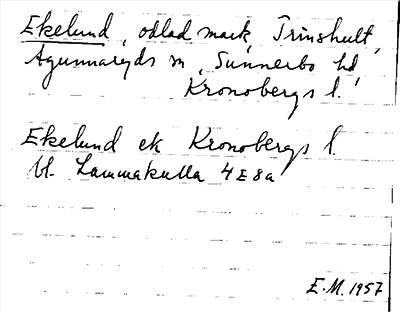 Ekelund, odlad mark, Trinshult,
Agunnaryds sn, Sunnerbo hd,
Kronobergs l.
Ekelund ek Kronobergs l.
bl. Lammakulla 4E8a
E.M. 1957